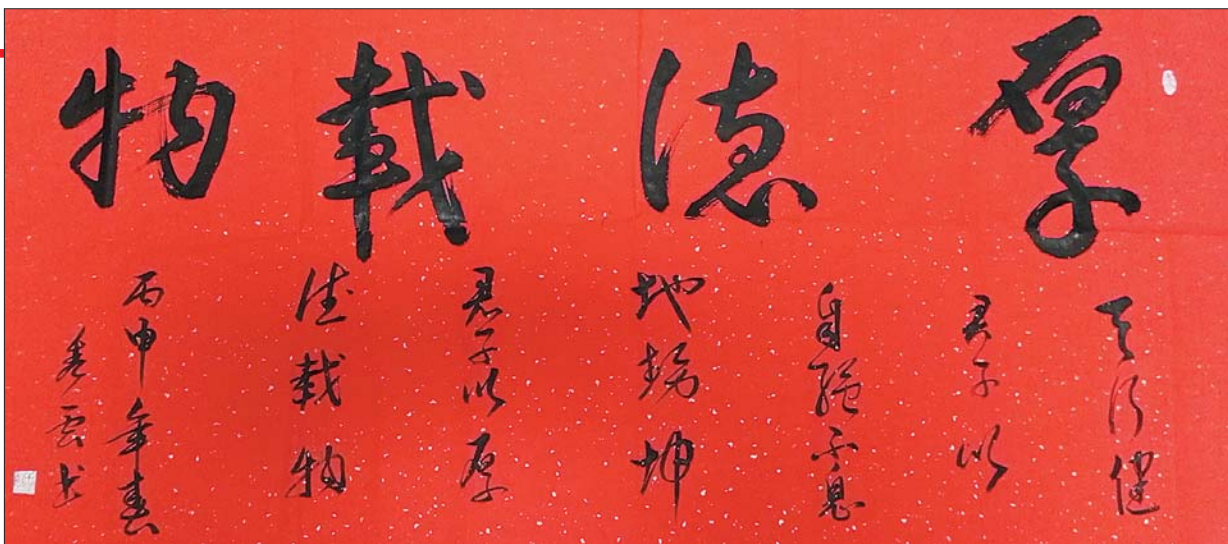 厚德載物
天行健
君子以
自强不息
地勢坤
君子以厚
德載物
丙申年春